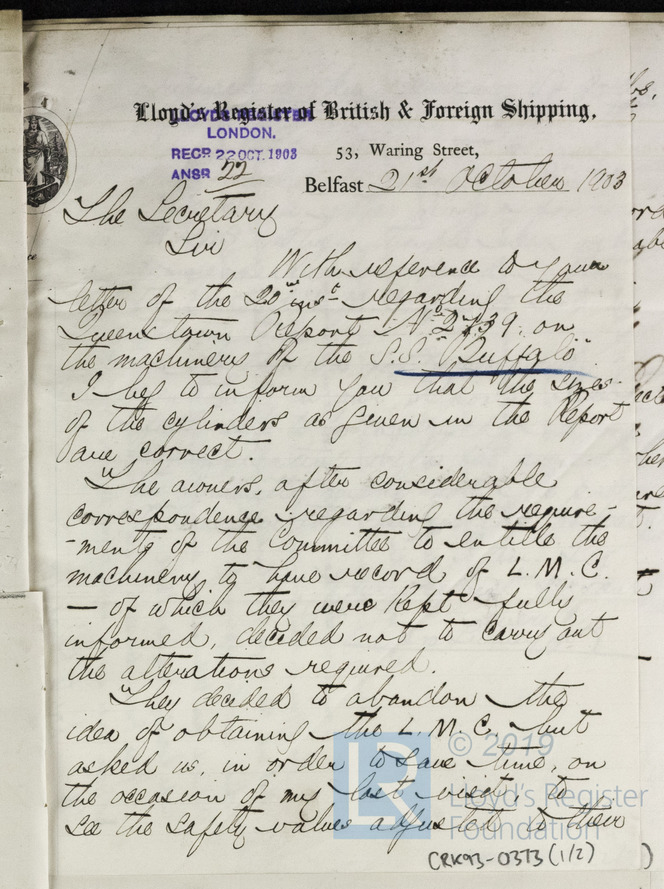 Lloyd's Register of British & Foreign Shipping,
LLOYD'S REGISTER
LONDON.
RECD 22 OCT. 1903
ANSR 22
53, Waring Street,
Belfast 21st October 1903
The Secretary
Sir
With reference to your
letter of the 20th inst regarding the
Queenstown Report No 2739 on
the machinery of the S.S. "Buffalo"
I beg to inform you that the sizes
of the cylinders as given in the Report
are correct.
The owners, after considerable
correspondence regarding the require-
-ments of the Committee to entitle the
machinery to have record of L.M.C.
— of which they were kept fully
informed, decided not to carry out
the alterations required.
They decided to abandon the
idea of obtaining the L.M.C. but
asked us, in order to save time, on
the occasion of my last visit to
see the safety valves adjusted to their
© 2019
LR
Lloyd's Register
Foundation
CRK93-0373 (1/2)